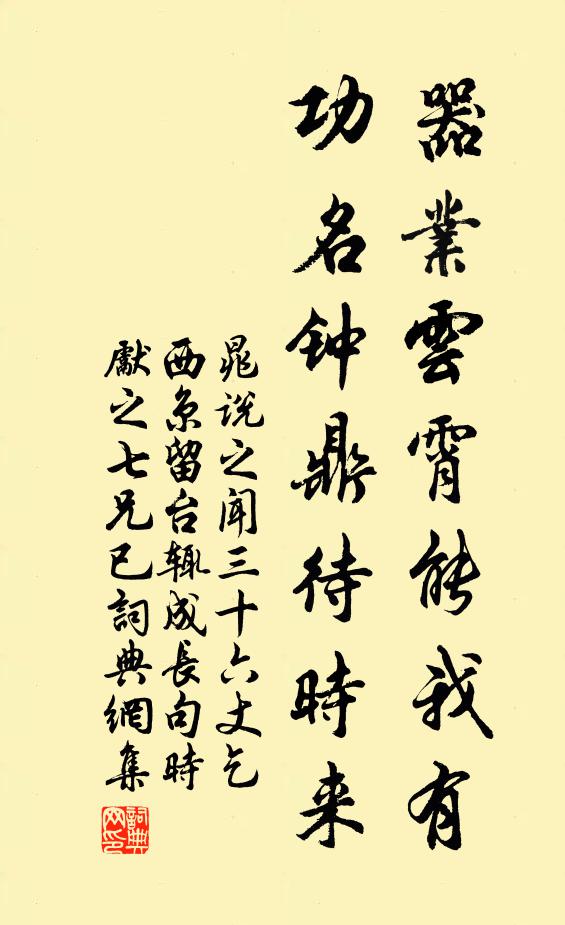 器業雲霄能我有
功名钟鼎待時来
晁说之闻三十六丈乞
西京留台辄成長句時
獻之七兄已詞典網集
詞典网印